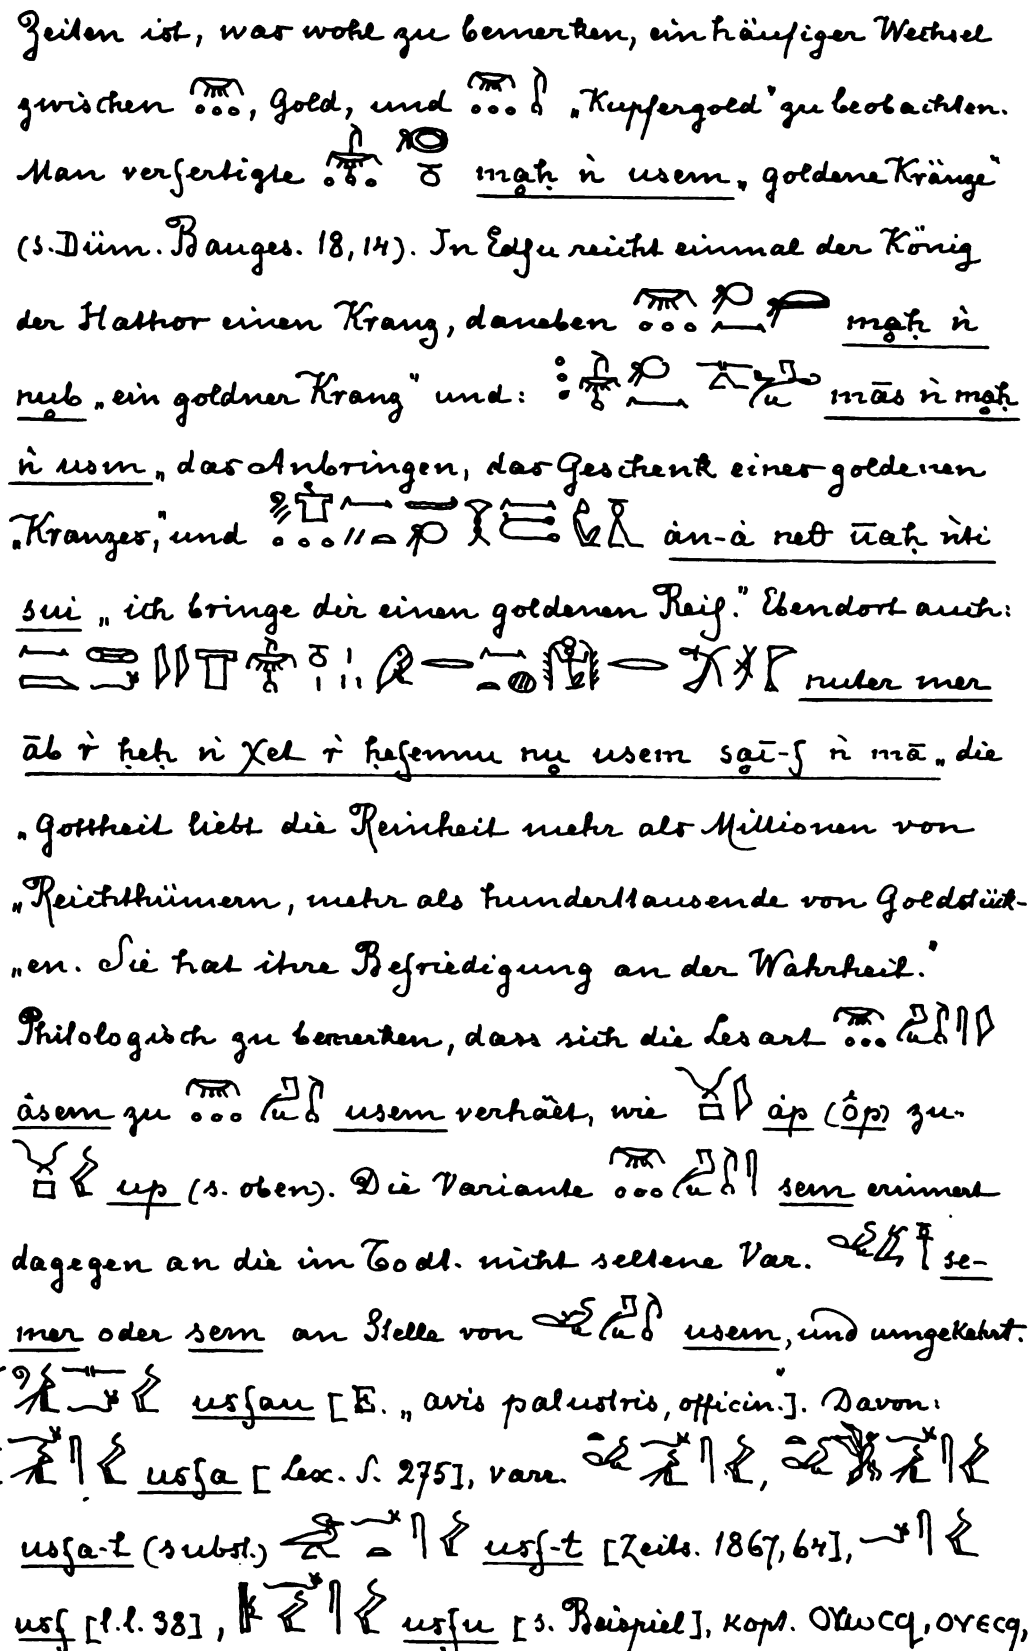 Zeilen ist, was wohl zu bemerken, ein häufiger Wechsel
zwischen , Gold, und „Kupfergold" zu beobachten.
Man verfertigte mạḥ ṅ usem „goldene Kränze"
(s. Düm. Bauges. 18, 14). In Edfu reicht einmal der König
der Hathor einen Kranz, daneben mạḥ ṅ
nụb „ein goldner Kranz" und: mās ṅ mạḥ
ṅ usm „das Anbringen, das Geschenk eines goldenen
„Kranzes," und ȧn-ȧ neθ ūaḥ ṅti
sui „ich bringe dir einen goldenen Reif." Ebendort auch:
nuter mer
āb ṙ ḥeḥ ṅ χet ṙ ḥefennu nụ usem sạī-f ṅ mā „die
„Gottheit liebt die Reinheit mehr als Millionen von
„Reichthümern, mehr als hunderttausende von Goldstück-
„en. Sie hat ihre Befriedigung an der Wahrheit."
Philologisch zu bemerken, dass sich die Lesart
âsem zu usem verhält, wie ȧp (ôp) zu
up (s. oben). Die Variante sem erinnert
dagegen an die im Todt. nicht seltene Var. se-
mer oder sem an Stelle von usem, und umgekehrt.
usfau [E. „avis palustris, officin."]. Davon:
usfa [Lex. S. 275], varr. ,
usfa-t (subst.) usf-t [Zeits. 1867, 64],
usf [l.l. 38], usfu [s. Beispiel], kopt. ⲟⲩⲱⲥϥ, ⲟⲩⲉⲥϥ,